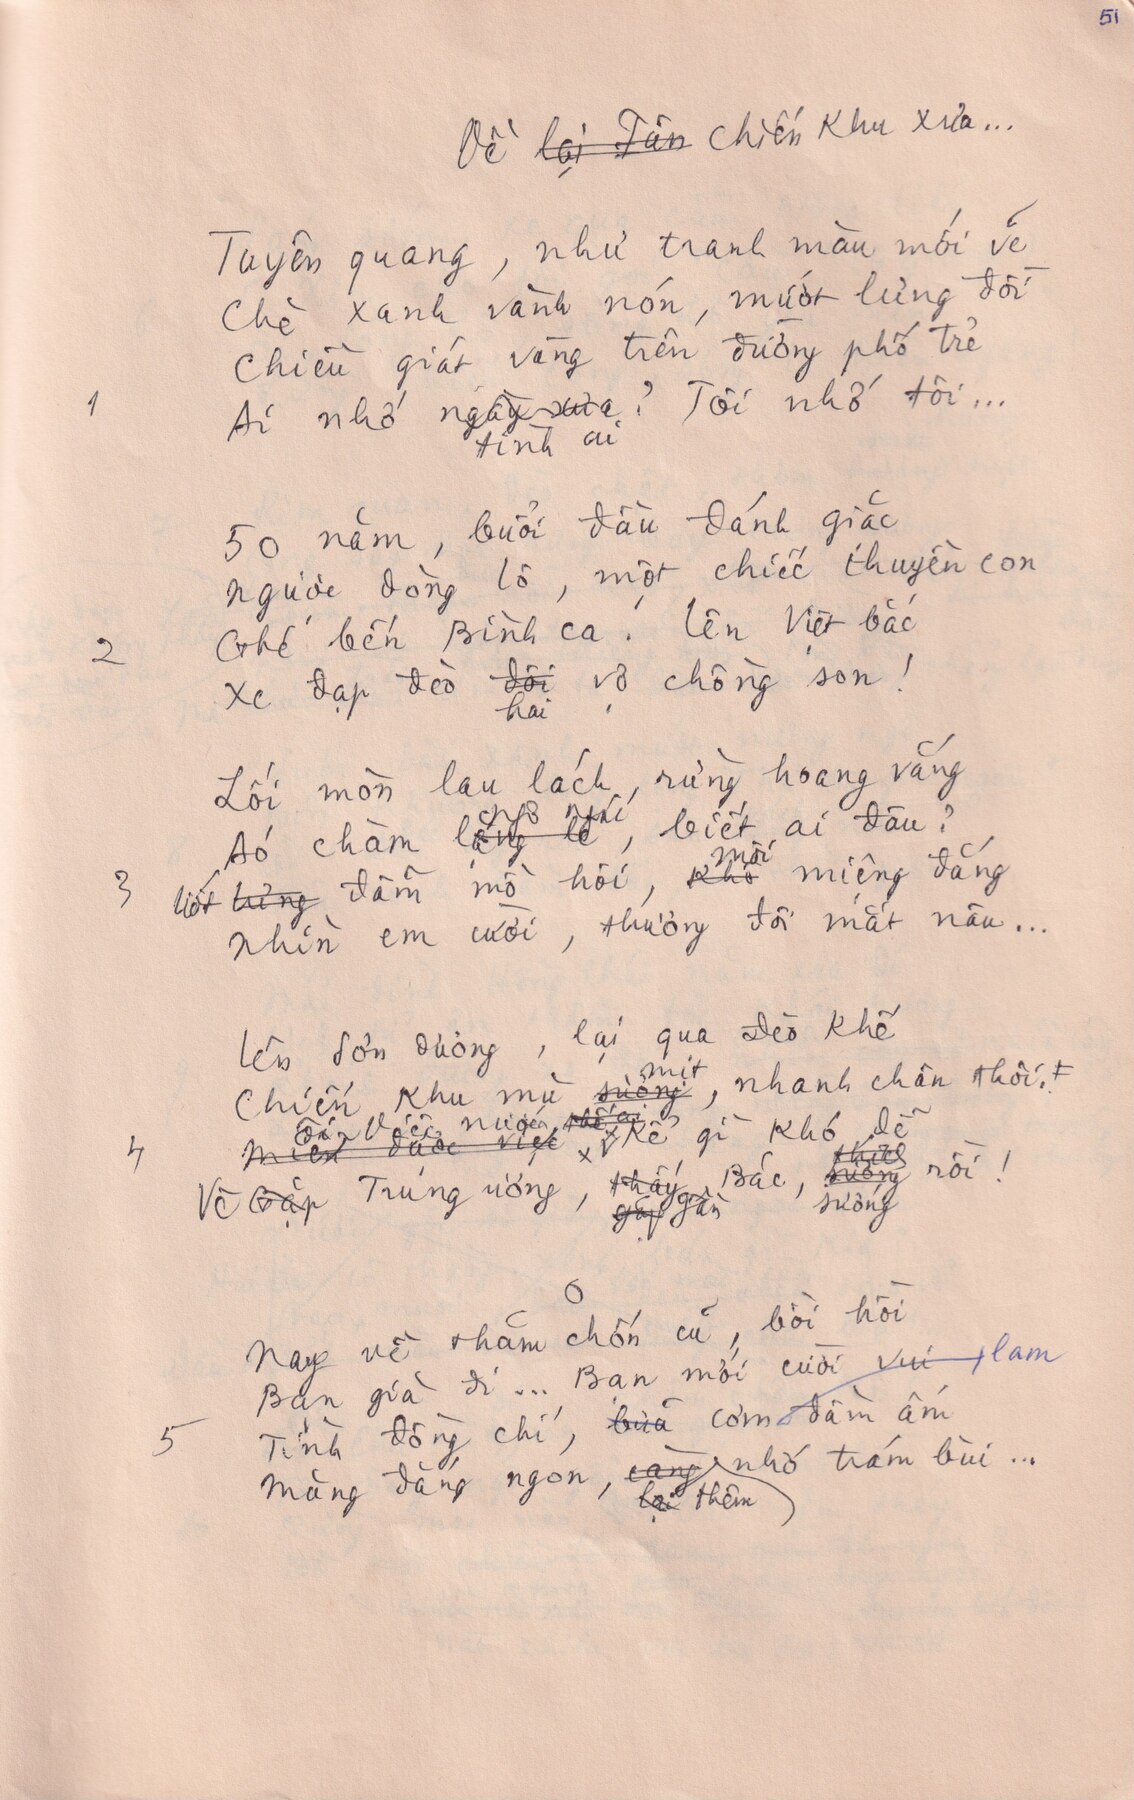 51
Về lại Tân chiến khu xưa...
Tuyên quang, như tranh màu mới vẽ
Chè xanh vành nón, mướt lưng đồi
Chiều giát vàng trên đường phố trẻ
1
Ai nhớ ngày xưa? Tôi nhớ tôi...
tình ai
50 năm, buổi đầu đánh giặc
ngược dòng lô, một chiếc thuyền con
Ghé bến Bình ca. Lên Việt bắc
2
Xe đạp đèo đôi vợ chồng son!
hai
Lối mòn lau lách, rừng hoang vắng
Áo chàm lặng lẽ, biết ai đâu?
3
môi
ướt lưng đẫm mồ hôi, khô miệng đắng
Nhìn em cười, thương đôi mắt nâu...
Lên Sơn dương, lại qua đèo Khế
mịt
Chiến khu mù sương, nhanh chân thôi!
4
việc nước
miễn được việc kể gì khó dễ
Về Gặp Trung ương, thấy Bác, sướng rồi!
gặp gần sướng
Nay về thăm chốn cũ, bồi hồi
Bạn già đi... Bạn mới cười vui lam
5
Tình đồng chí, bữa cơm đầm ấm
Măng đắng ngon, càng nhớ trám bùi...
lại thêm